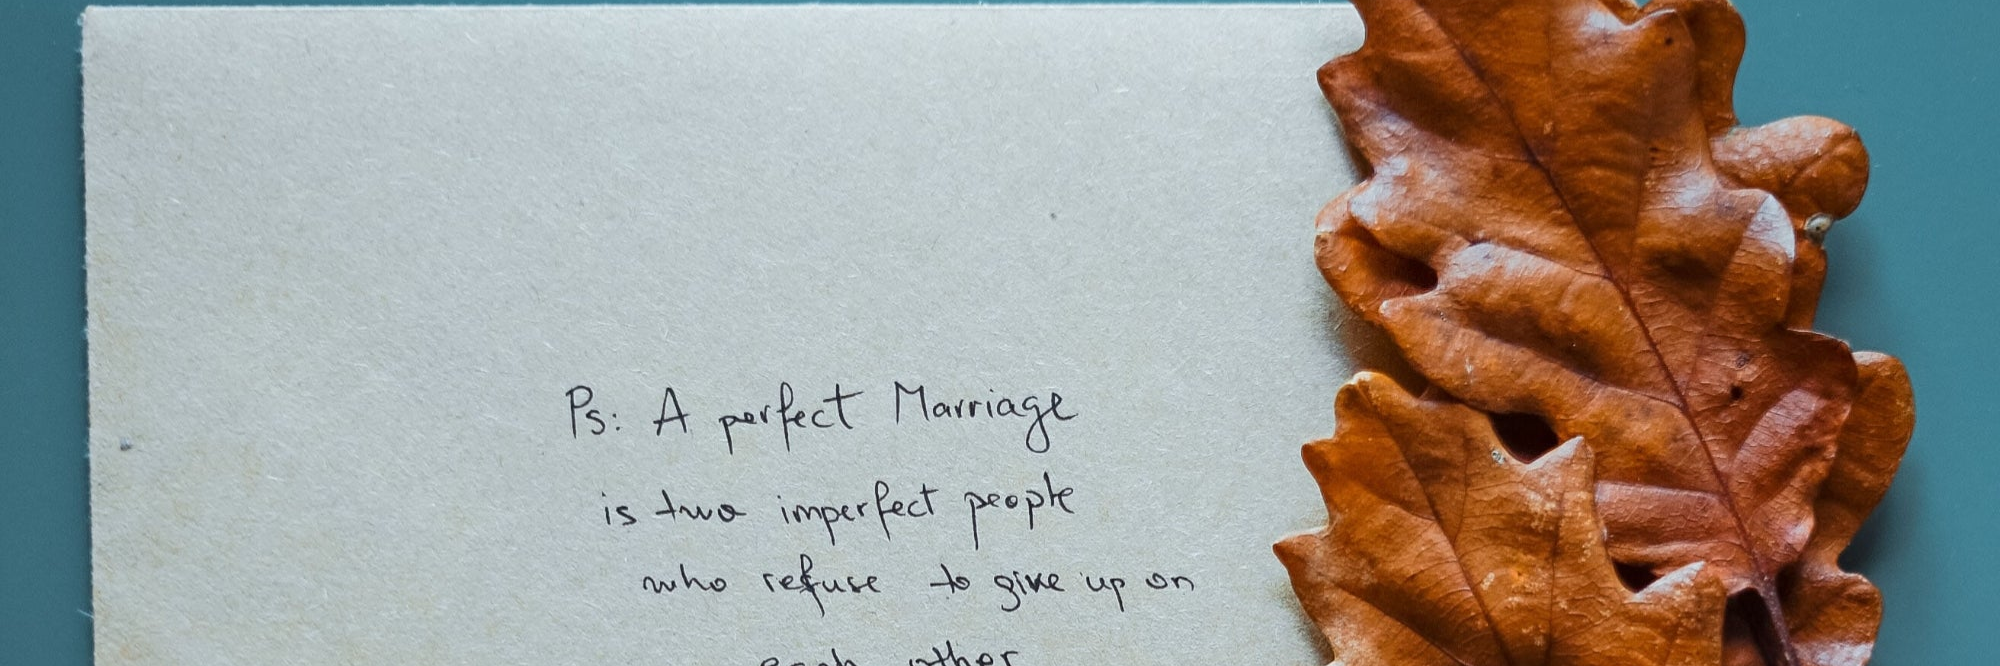 Ps: A perfect Marriage
is two imperfect people
who refuse to give up on
each other